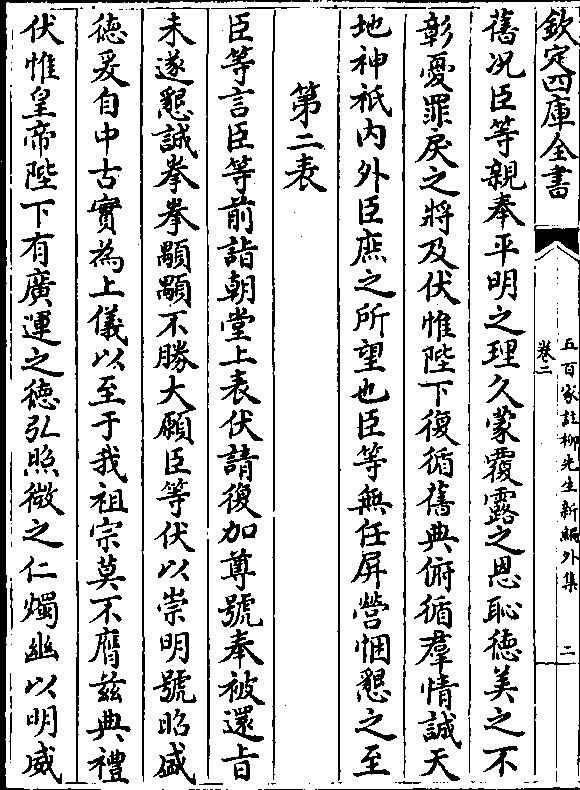 欽定四庫全書
五百家註柳先生新編外集
卷二
二
舊况臣等親奉平明之理久蒙覆露之恩恥德美之不
彰憂罪戾之將及伏惟陛下復循舊典俯循羣情誠天
地神祇内外臣庶之所望也臣等無任屏營悃懇之至
第二表
臣等言臣等前詣朝堂上表伏請復加尊號奉被還旨
未遂懇誠拳拳顒顒不勝大願臣等伏以崇明號昭盛
德爰自中古實為上儀以至于我祖宗莫不膺兹典禮
伏惟皇帝陛下有廣運之德弘照微之仁燭幽以明威